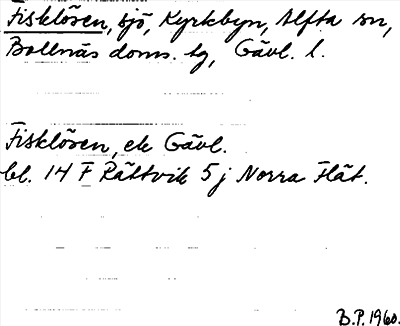 Fisklösen, sjö, Kyrkbyn, Alfta sn,
Bollnäs doms. tg, Gävl. l.
Fisklösen, ek Gävl.
bl. 14 F Rättvik 5 j Norra Flät.
B.P. 1960.